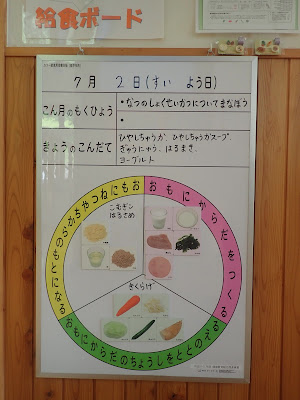 給食ボード
7月 2日(すい よう日)
こん月のもくひょう
・なつのしょくせいかつについてまなぼう
・
きょうのこんだて
ひやしちゅうか、ひやしちゅうかスープ
ぎゅうにゅう、はるまき、
ヨーグルト
おもにねつやちからのもとになる
おもにからだをつくる
こむぎこ
はるさめ
きくらげ
おもにからだのちょうしをととのえる